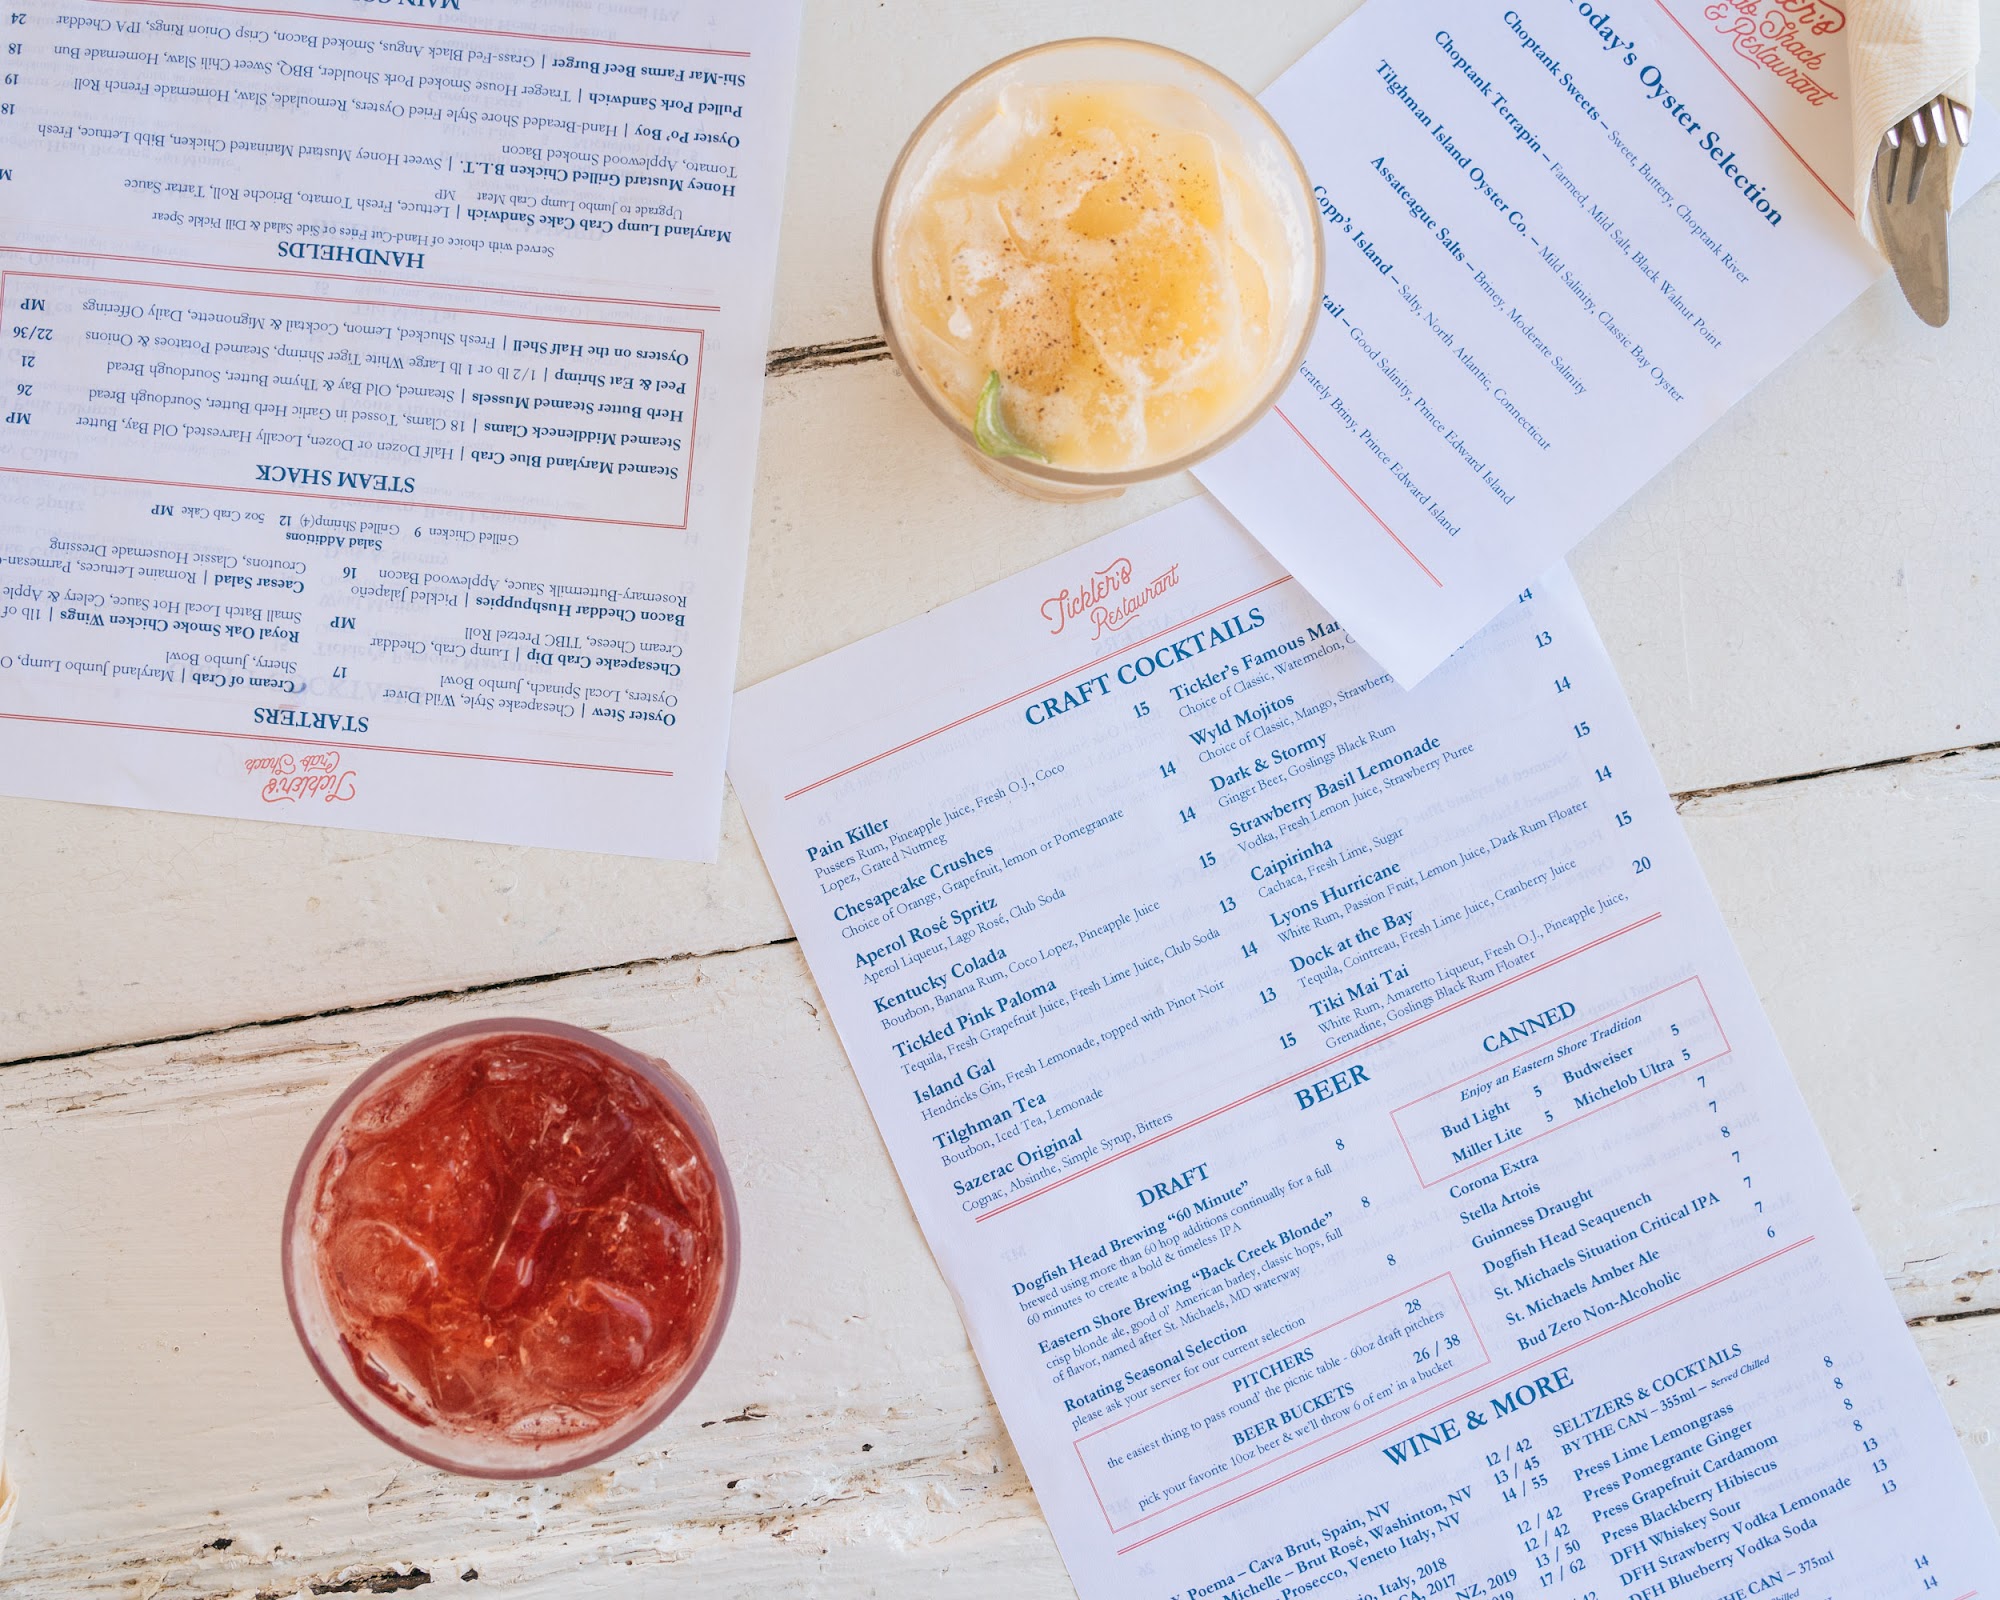 Tickler's
Crab Shack
STARTERS
Oyster Stew | Chesapeake, Style, Wild Diver
Oysters, Local, Spinach, Jumbo Bowl 17
Chesapeake Crab Dip | Lump Crab, Cheddar
Cream Cheese, TIBC Pretzel Roll MP
Bacon Cheddar Hushpuppies | Pickled Jalapeño
Rosemary-Buttermilk Sauce, Applewood Bacon 16
Cream of Crab | Maryland Jumbo Lump,
Sherry, Jumbo Bowl
Royal Oak Smoke Chicken Wings | 1lb of
Small Batch Local Hot Sauce, Celery & Apple
Caesar Salad | Romaine Lettuces, Parmesan-
Croutons, Classic Housemade Dressing
Salad Additions
Grilled Chicken 9 Grilled Shrimp(4) 12 5oz Crab Cake MP
STEAM SHACK
Steamed Maryland Blue Crab | Half Dozen or Dozen, Locally Harvested, Old Bay, Butter MP
Steamed Middleneck Clams | 18 Clams, Tossed in Garlic Herb Butter, Sourdough Bread 26
Herb Butter Steamed Mussels | Steamed, Old Bay & Thyme Butter, Sourdough Bread 21
Peel & Eat Shrimp | 1/2 lb or 1 lb Large White Tiger Shrimp, Steamed Potatoes & Onions 22/36
Oysters on the Half Shell | Fresh Shucked, Lemon, Cocktail & Mignonette, Daily Offerings MP
HANDHELDS
Served with choice of Hand-Cut Fries or Side Salad & Dill Pickle Spear
Maryland Lump Crab Cake Sandwich | Lettuce, Fresh Tomato, Brioche Roll, Tartar Sauce
Upgrade to Jumbo Lump Crab Meat MP
Honey Mustard Grilled Chicken B.L.T. | Sweet Honey Mustard Marinated Chicken, Bibb Lettuce, Fresh
Tomato, Applewood Smoked Bacon 18
Oyster Po' Boy | Hand-Breaded Shore Style Fried Oysters, Remoulade, Slaw, Homemade French Roll 19
Pulled Pork Sandwich | Traeger House Smoked Pork Shoulder, BBQ, Sweet Chili Slaw, Homemade Bun 18
Shi-Mar Farms Beef Burger | Grass-Fed Black Angus, Smoked Bacon, Crisp Onion Rings, IPA Cheddar 24
MAIN
Shack
& Restaurant
Today's Oyster Selection
Choptank Sweets – Sweet, Buttery, Choptank River
Choptank Terrapin – Farmed, Mild Salt, Black Walnut Point
Tilghman Island Oyster Co. – Mild Salinity, Classic Bay Oyster
Assateague Salts – Briney, Moderate Salinity
Copp's Island – Salty, North Atlantic, Connecticut
– Good Salinity, Prince Edward Island
Briny, Prince Edward Island
Tickler's
Restaurant
CRAFT COCKTAILS
Pain Killer 15
Pussers Rum, Pineapple Juice, Fresh O.J., Coco
Lopez, Grated Nutmeg
Chesapeake Crushes 14
Choice of Orange, Grapefruit, lemon or Pomegranate
Aperol Rosé Spritz 14
Aperol Liqueur, Lago Rosé, Club Soda
Kentucky Colada 15
Bourbon, Banana Rum, Coco Lopez, Pineapple Juice
Tickled Pink Paloma 13
Tequila, Fresh Grapefruit Juice, Fresh Lime Juice, Club Soda
Island Gal 14
Hendricks Gin, Fresh Lemonade, topped with Pinot Noir
Tilghman Tea 13
Bourbon, Iced Tea, Lemonade
Sazerac Original 15
Cognac, Absinthe, Simple Syrup, Bitters
Tickler's Famous 14
Choice of Classic, Watermelon,
Wyld Mojitos 13
Choice of Classic, Mango, Strawberry
Dark & Stormy 14
Ginger Beer, Goslings Black Rum
Strawberry Basil Lemonade 15
Vodka, Fresh Lemon Juice, Strawberry Puree
Caipirinha 14
Cachaca, Fresh Lime, Sugar
Lyons Hurricane 15
White Rum, Passion Fruit, Lemon Juice, Dark Rum Floater
Dock at the Bay 20
Tequila, Cointreau, Fresh Lime Juice, Cranberry Juice
Tiki Mai Tai
White Rum, Amaretto Liqueur, Fresh O.J., Pineapple Juice,
Grenadine, Goslings Black Rum Floater
BEER
DRAFT
Dogfish Head Brewing "60 Minute" 8
brewed using more than 60 hop additions continually for a full
60 minutes to create a bold & timeless IPA
Eastern Shore Brewing "Back Creek Blonde" 8
crisp blonde ale, good ol' American barley, classic hops, full
of flavor, named after St. Michaels, MD waterway
Rotating Seasonal Selection 8
please ask your server for our current selection
PITCHERS 28
the easiest thing to pass round' the picnic table - 60oz draft pitchers
BEER BUCKETS 26 / 38
pick your favorite 10oz beer & we'll throw 6 of em' in a bucket
CANNED
Enjoy an Eastern Shore Tradition
Bud Light 5 Budweiser 5
Miller Lite 5 Michelob Ultra 5
Corona Extra 7
Stella Artois 7
Guinness Draught 8
Dogfish Head Seaquench 7
St. Michaels Situation Critical IPA 7
St. Michaels Amber Ale 7
Bud Zero Non-Alcoholic 6
WINE & MORE
Poema – Cava Brut, Spain, NV 12 / 42
Michelle – Brut Rosé, Washinton, NV 13 / 45
Prosecco, Veneto Italy, NV 14 / 55
Italy, 2018 12 / 42
CA, 2017 12 / 42
NZ, 2019 13 / 50
17 / 62
SELTZERS & COCKTAILS
BY THE CAN – 355ml – Served Chilled
Press Lime Lemongrass 8
Press Pomegrante Ginger 8
Press Grapefruit Cardamom 8
Press Blackberry Hibiscus 8
DFH Whiskey Sour 13
DFH Strawberry Vodka Lemonade 13
DFH Blueberry Vodka Soda 13
THE CAN – 375ml
Chilled
14
14